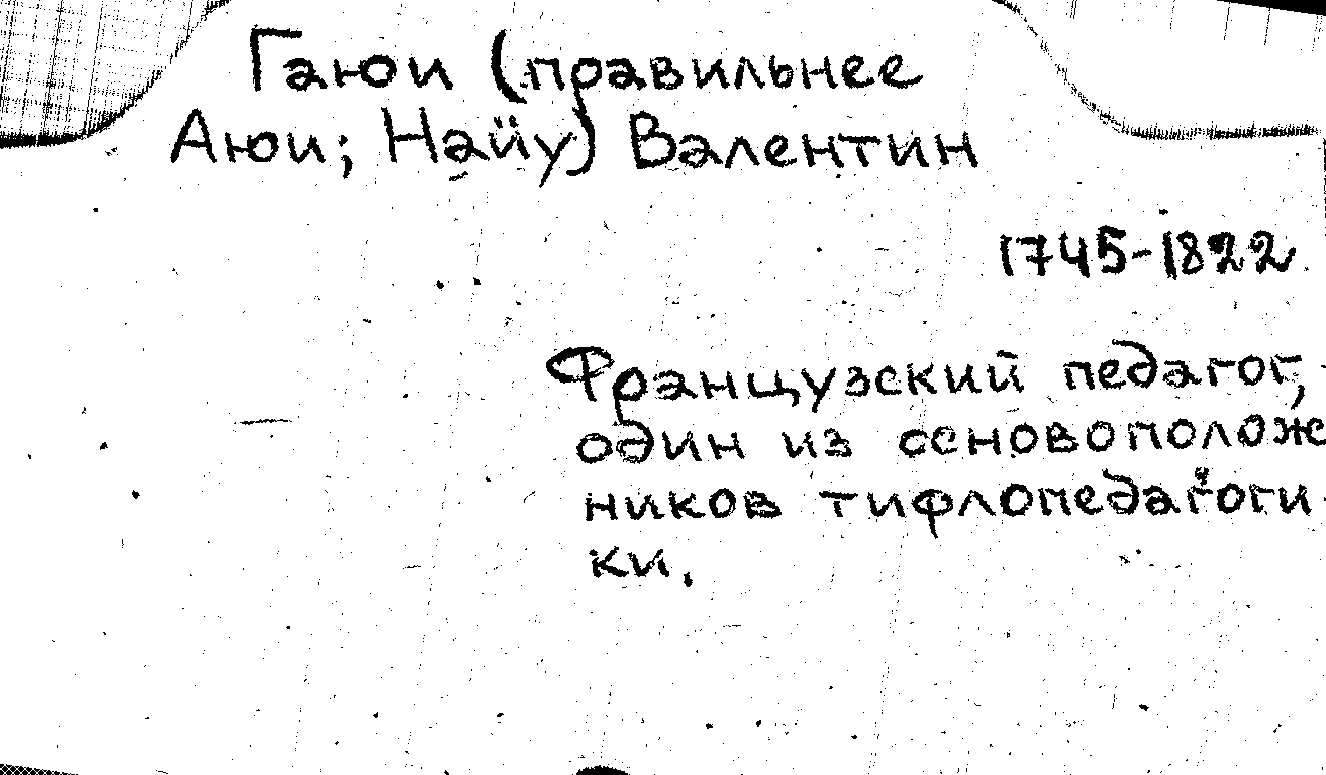 Гаюи (правильнее
Аюи; Haüy) Валентин
1745-1822
Французский педагог,
один из основополож
ников тифлопедагоги
ки.